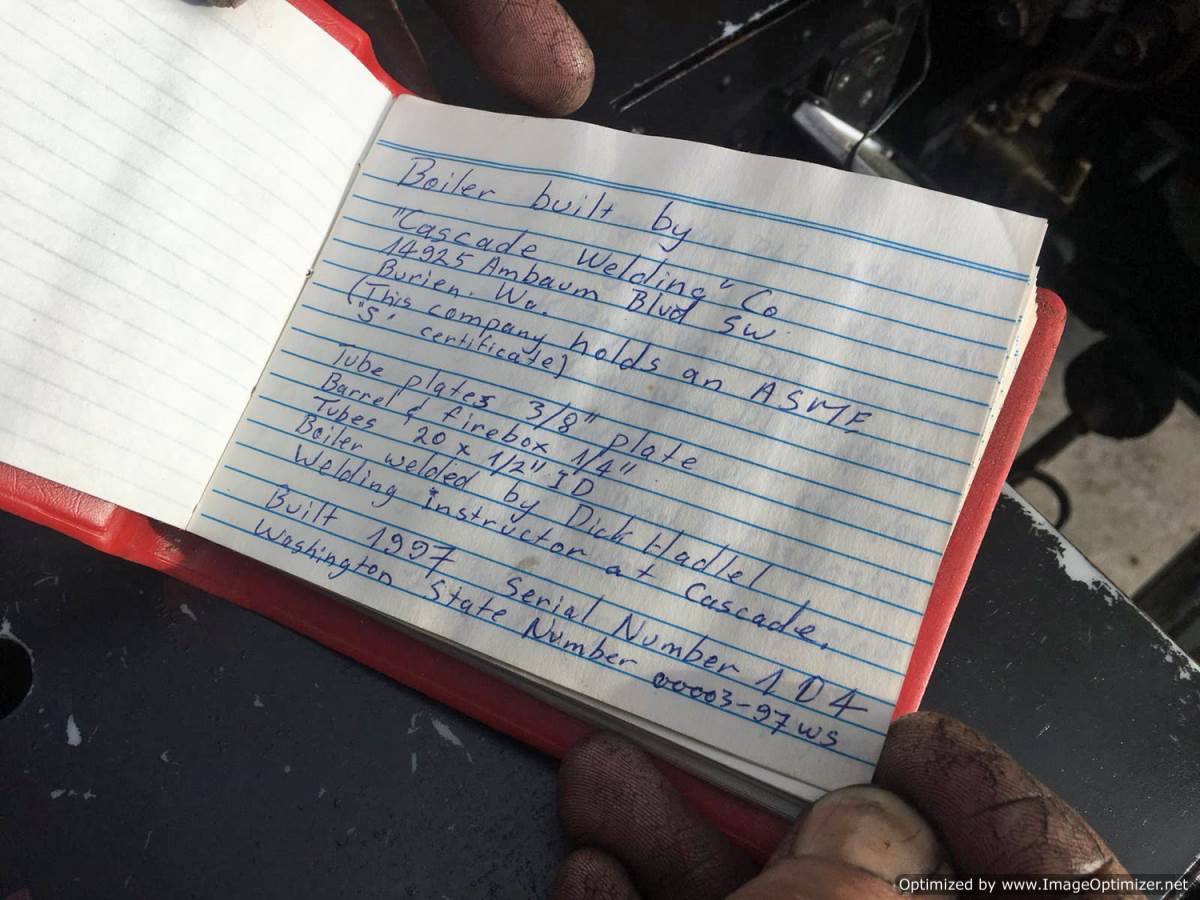 Boiler built by
"Cascade Welding" Co
14925 Ambaum Blvd SW.
Burien. Wa.
(This company holds an ASME
"S" certificate)
Tube plates 3/8" plate
Barrel & firebox 1/4"
Tubes 20 x 1/2" ID
Boiler welded by Dick Hadlel
Welding instructor at Cascade.
Built 1997 Serial Number 1D4
Washington State Number 00003-97WS
Optimized by www.ImageOptimizer.net